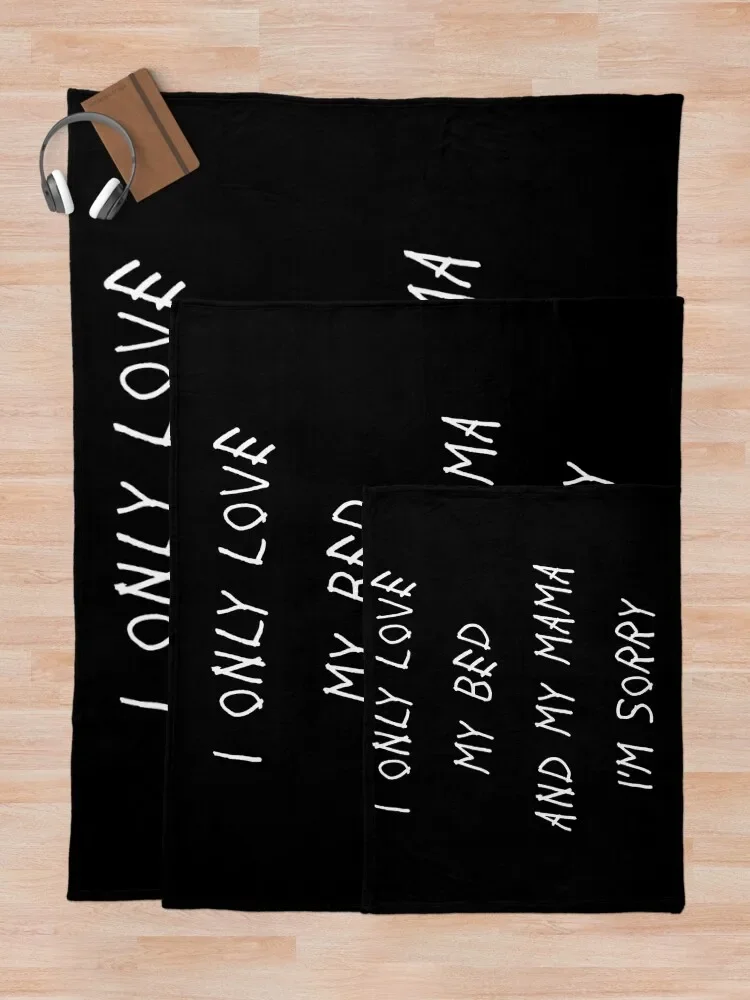 I ONLY LOVE
MA
I ONLY LOVE
MY BED
MA
Y
I ONLY LOVE
MY BED
AND MY MAMA
I'M SORRY